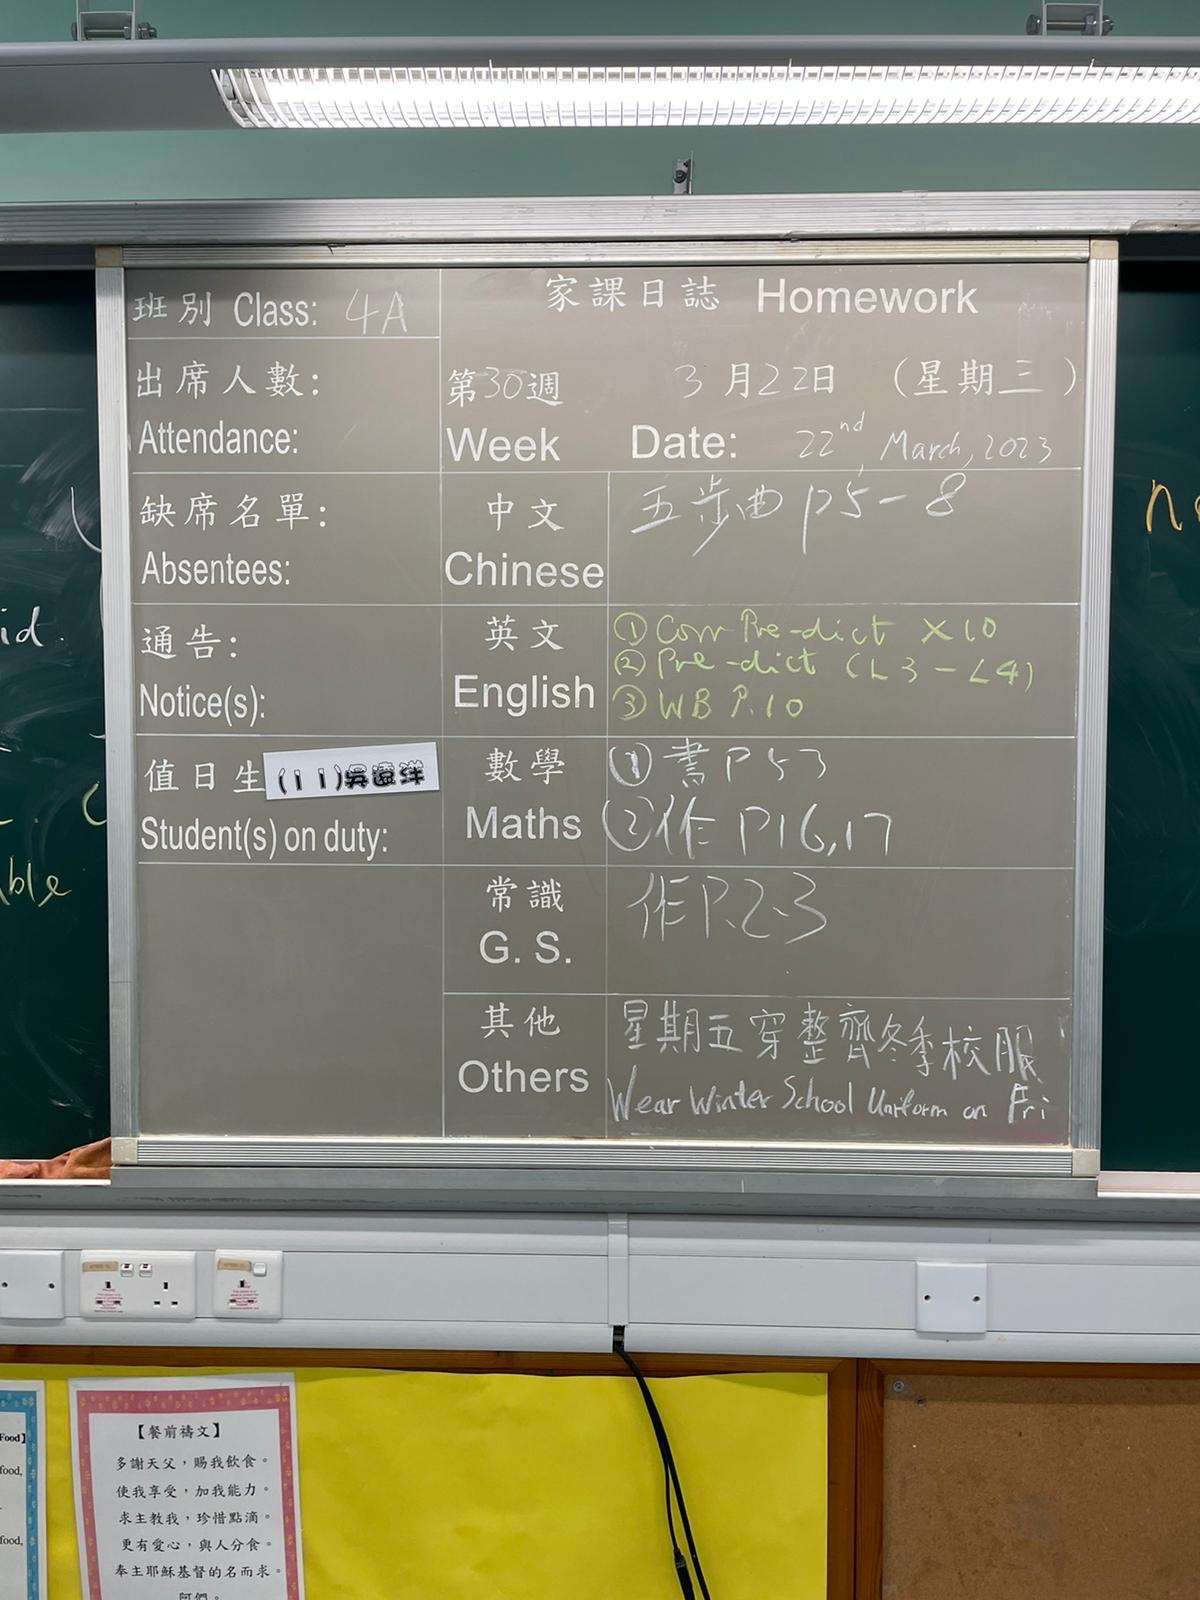 班別 Class: 4A
家課日誌 Homework
出席人數:
Attendance:
第30週 3月22日 (星期三)
Week Date: 22nd, March, 2023
缺席名單:
Absentees:
中文
Chinese
五步曲 p5-8
通告:
Notice(s):
英文
English
① Corr Pre-dict ×10
② Pre-dict (L3-L4)
③ WB P.10
值日生
(11)吳遠洋
Student(s) on duty:
數學
Maths
① 書P53
② 作 P16,17
常識
G. S.
作P.2-3
其他
Others
星期五穿整齊冬季校服
Wear Winter School Uniform on Fri
id.
able
Food】
food,
food,
【餐前禱文】
多謝天父，賜我飲食。
使我享受，加我能力。
求主教我，珍惜點滴。
更有愛心，與人分食。
奉主耶穌基督的名而求。
阿們。